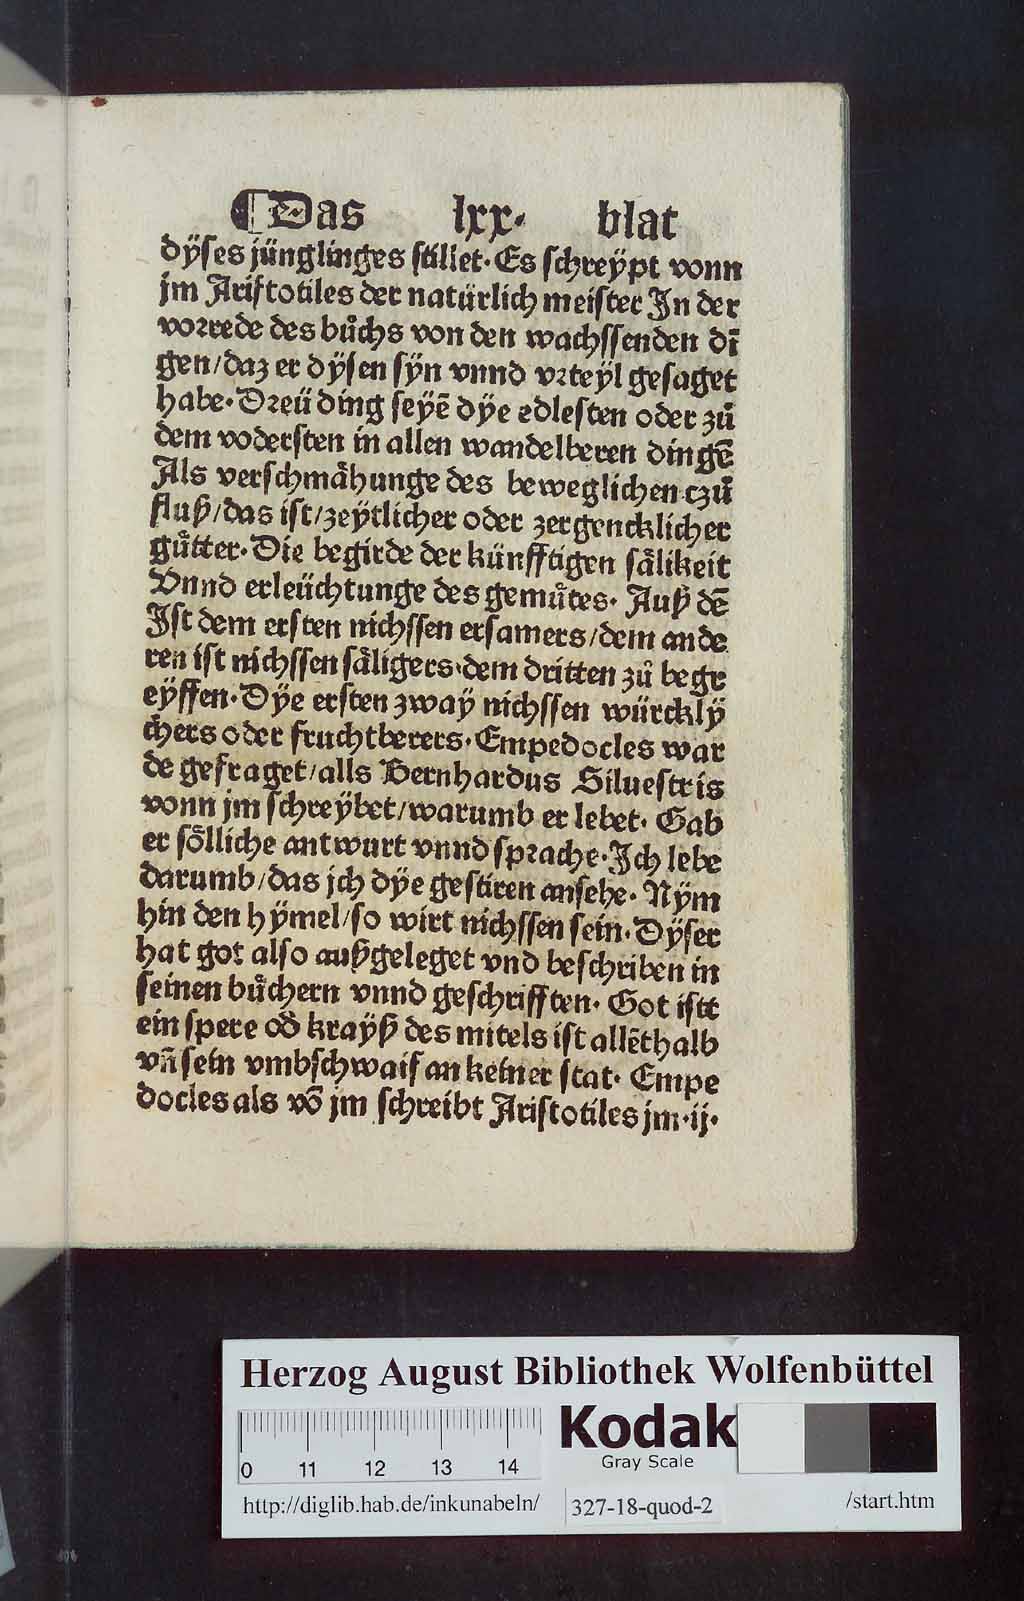 ¶ Das lxx· blat
dÿses jünglinges stillet· Es schreÿpt vonn
jm Aristotiles der natürlich meister In der
vorrede des bůchs von den wachssenden dī
gen/daz er dÿsen sÿn vnnd vrteyl gesaget
habe· Dreü ding seyē dÿe edlesten oder zů
dem vodersten in allen wandelberen dingē
Als verschmåhunge des beweglichen czů
fluß/das ist/zeÿtlicher oder zergencklicher
gůtter· Die begirde der künfftigen såligkeit
Vnnd erleüchtunge des gemůtes· Auß dē
Ist dem ersten nichssen ersamers/dem ande
ren ist nichssen såligers·dem dritten zů begr
eÿffen· Dÿe ersten zwaÿ nichssen würcklÿ
chers oder fruchtberers· Empedocles war
de gefraget/alls Bernhardus Siluestris
vonn jm schreÿbet/warumb er lebet· Gab
er sölliche antwurt vnnd sprache· Ich lebe
darumb/das jch dÿe gestiren ansehe· Nÿm
hin den hÿmel/so wirt nichssen sein· Dÿser
hat got also außgeleget vnd beschriben in
seinen bůchern vnnd geschrifften· Got istt
ein spere od̄ krayß des mitels ist allēthalb
vn̄ sein vmbschwaif an keiner stat· Empe
docles als vō jm schreibt Aristotiles jm·ij·
Herzog August Bibliothek Wolfenbüttel
0 11 12 13 14
Kodak
Gray Scale
http://diglib.hab.de/inkunabeln/ 327-18-quod-2 /start.htm